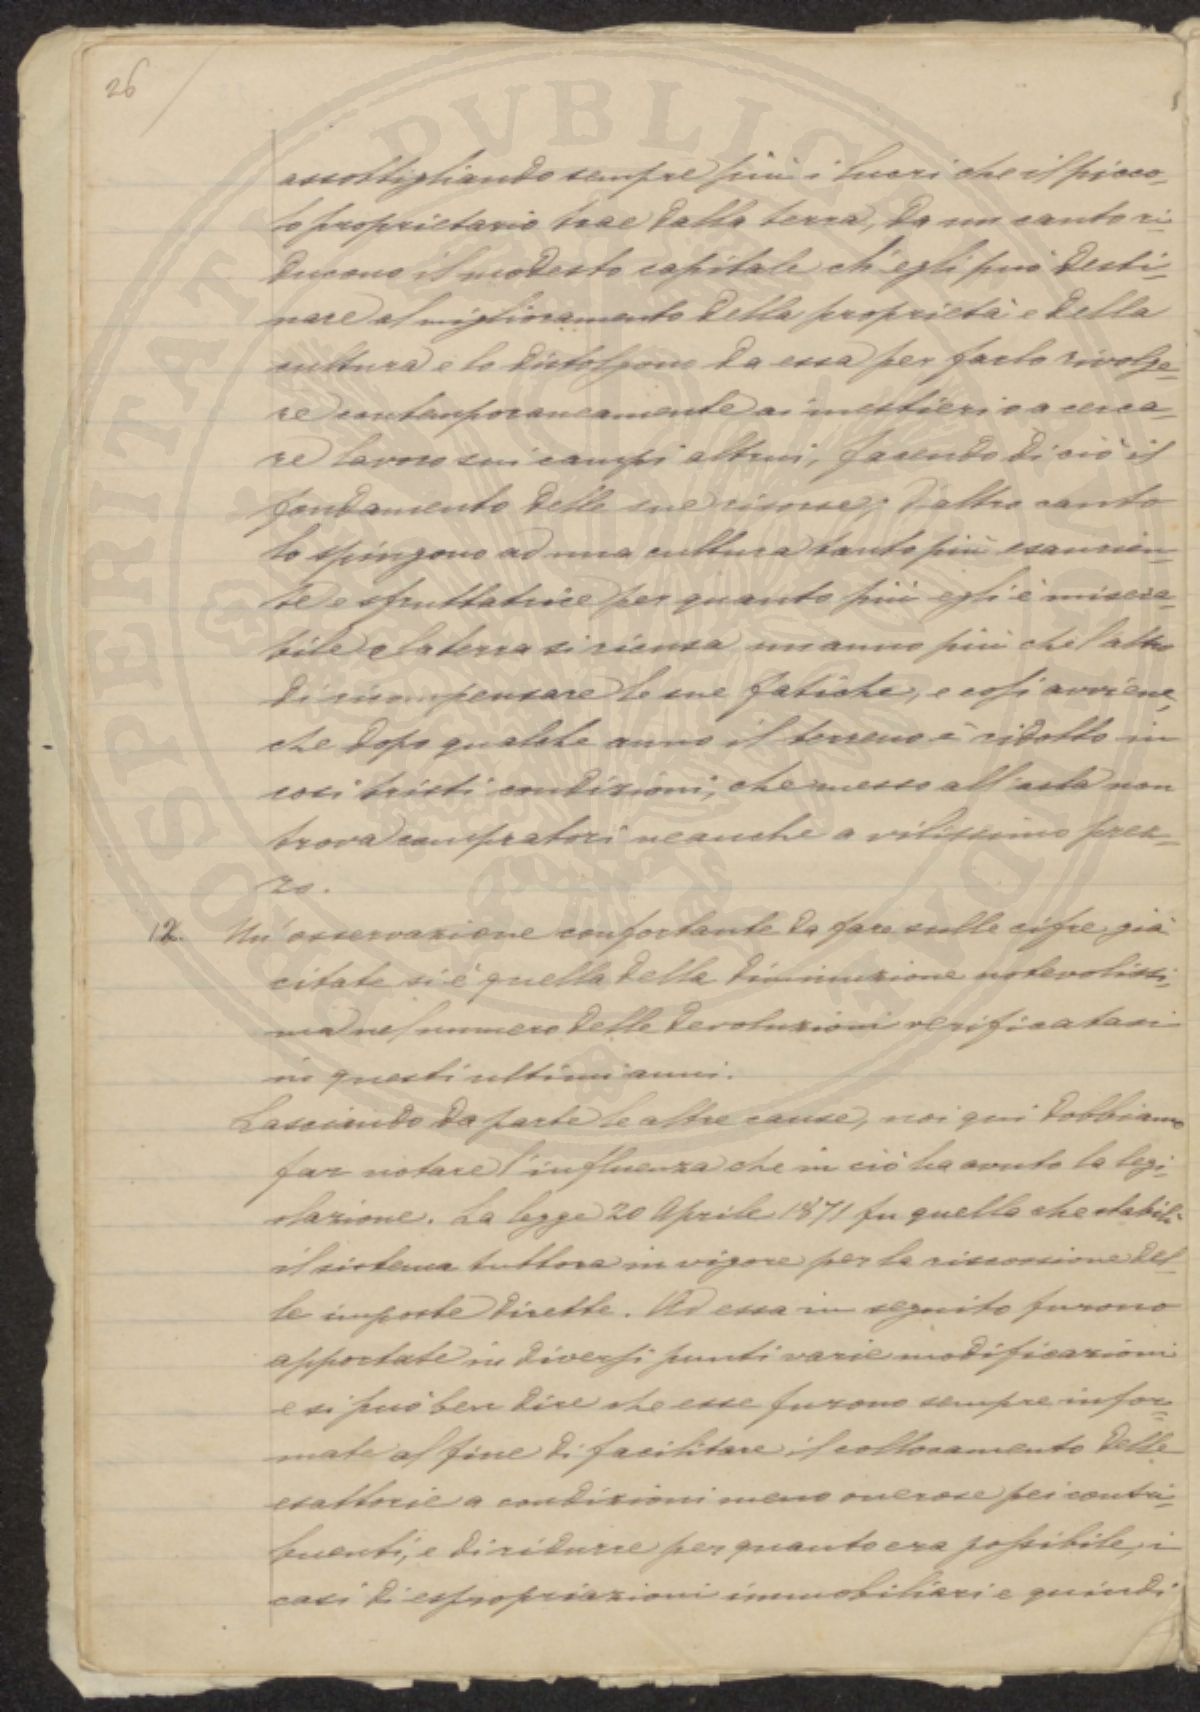 26
assottigliando sempre più i lucri che il picco-
lo proprietario trae dalla terra, da un canto ri-
ducono il modesto capitale ch'egli può desti-
nare al miglioramento della proprietà e della
cultura e lo distolgono da essa per farlo rivolge-
re contemporaneamente ai mestieri o a cerca-
re lavoro sui campi altrui, facendo di ciò il
fondamento delle sue risorse; d'altro canto
lo spingono ad una cultura tanto più esaurien-
te e sfruttatrice per quanto più egli è misera-
bile e la terra si ricusa un anno più che l'altro
di ricompensare le sue fatiche, e così avviene,
che dopo qualche anno il terreno è ridotto in
così tristi condizioni, che messo all'asta non
trova compratori neanche a vilissimo prez-
zo.
12. Un'osservazione confortante da fare sulle cifre già
citate si è quella della diminuzione notevolissi-
ma nel numero delle devoluzioni verificatasi
in questi ultimi anni.
Lasciando da parte le altre cause, noi qui dobbiamo
far notare l'influenza che in ciò ha avuto la legi-
slazione. La legge 20 Aprile 1871 fu quella che stabilì
il sistema tuttora in vigore per la riscossione del-
le imposte dirette. Ad essa in seguito furono
apportate in diversi punti varie modificazioni
e si può ben dire che esse furono sempre infor-
mate al fine di facilitare il collocamento delle
esattorie a condizioni meno onerose pei contri-
buenti, e di ridurre per quanto era possibile, i
casi di espropriazioni immobiliari e quindi